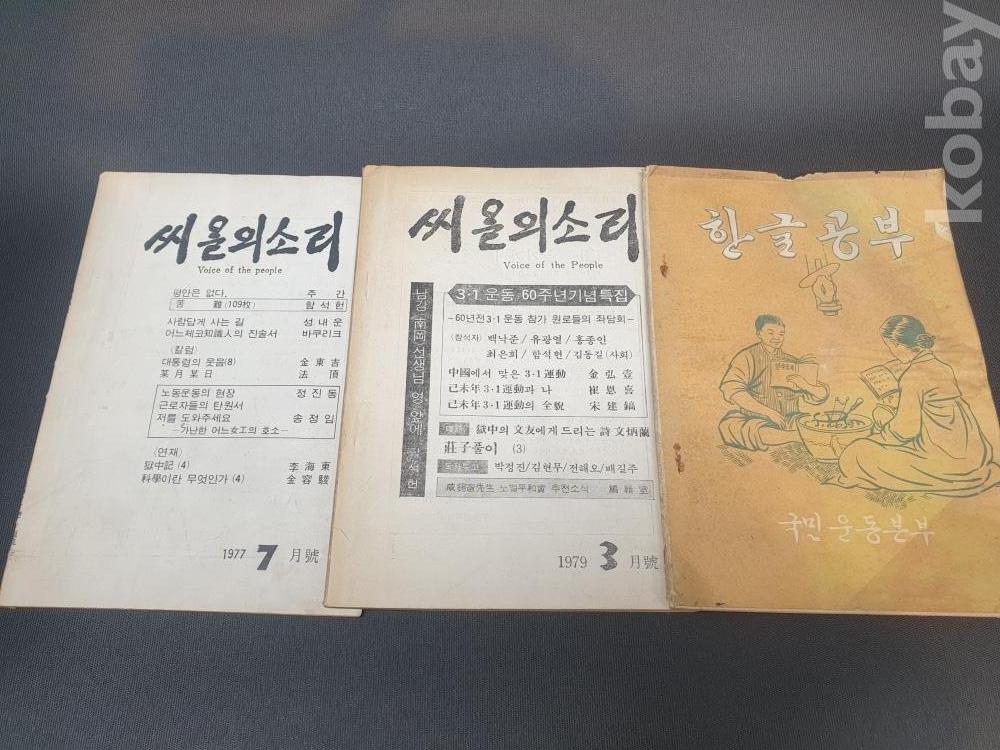 씨올의소리
Voice of the people
평안은 없다. 주간
苦難 (109枚) 함석헌
사람답게 사는 길 성내운
어느체코知識人의 진술서 바쿠리크
〈칼럼〉
대통령의 웃음(8) 金東吉
某月某日 法頂
노동운동의 현장 정진동
근로자들의 탄원서
저를 도와주세요 송정임
-가난한 어느女工의 호소-
〈연재〉
獄中記 (4) 李海東
科學이란 무엇인가 (4) 金容駿
1977 7 月號
씨올의소리
Voice of the People
남강(南岡)선생님 영 앞에 함석헌
3·1 운동 60주년기념특집
—60년전3·1운동 참가 원로들의 좌담회—
(참석자) 백낙준/유광열/홍종인
최은희/함석헌/김동길(사회)
中國에서 맞은 3·1運動 金弘壹
己未年3·1運動과 나 崔恩喜
己未年3·1運動의 全貌 宋建鎬
獄中의 文友에게 드리는 詩 文炳蘭
莊子풀이 (3)
박정진/김현무/전해오/배길주
咸錫憲先生 노벨平和賞 추천소식 編輯室
1979 3 月號
한글공부
국민운동본부
kobay